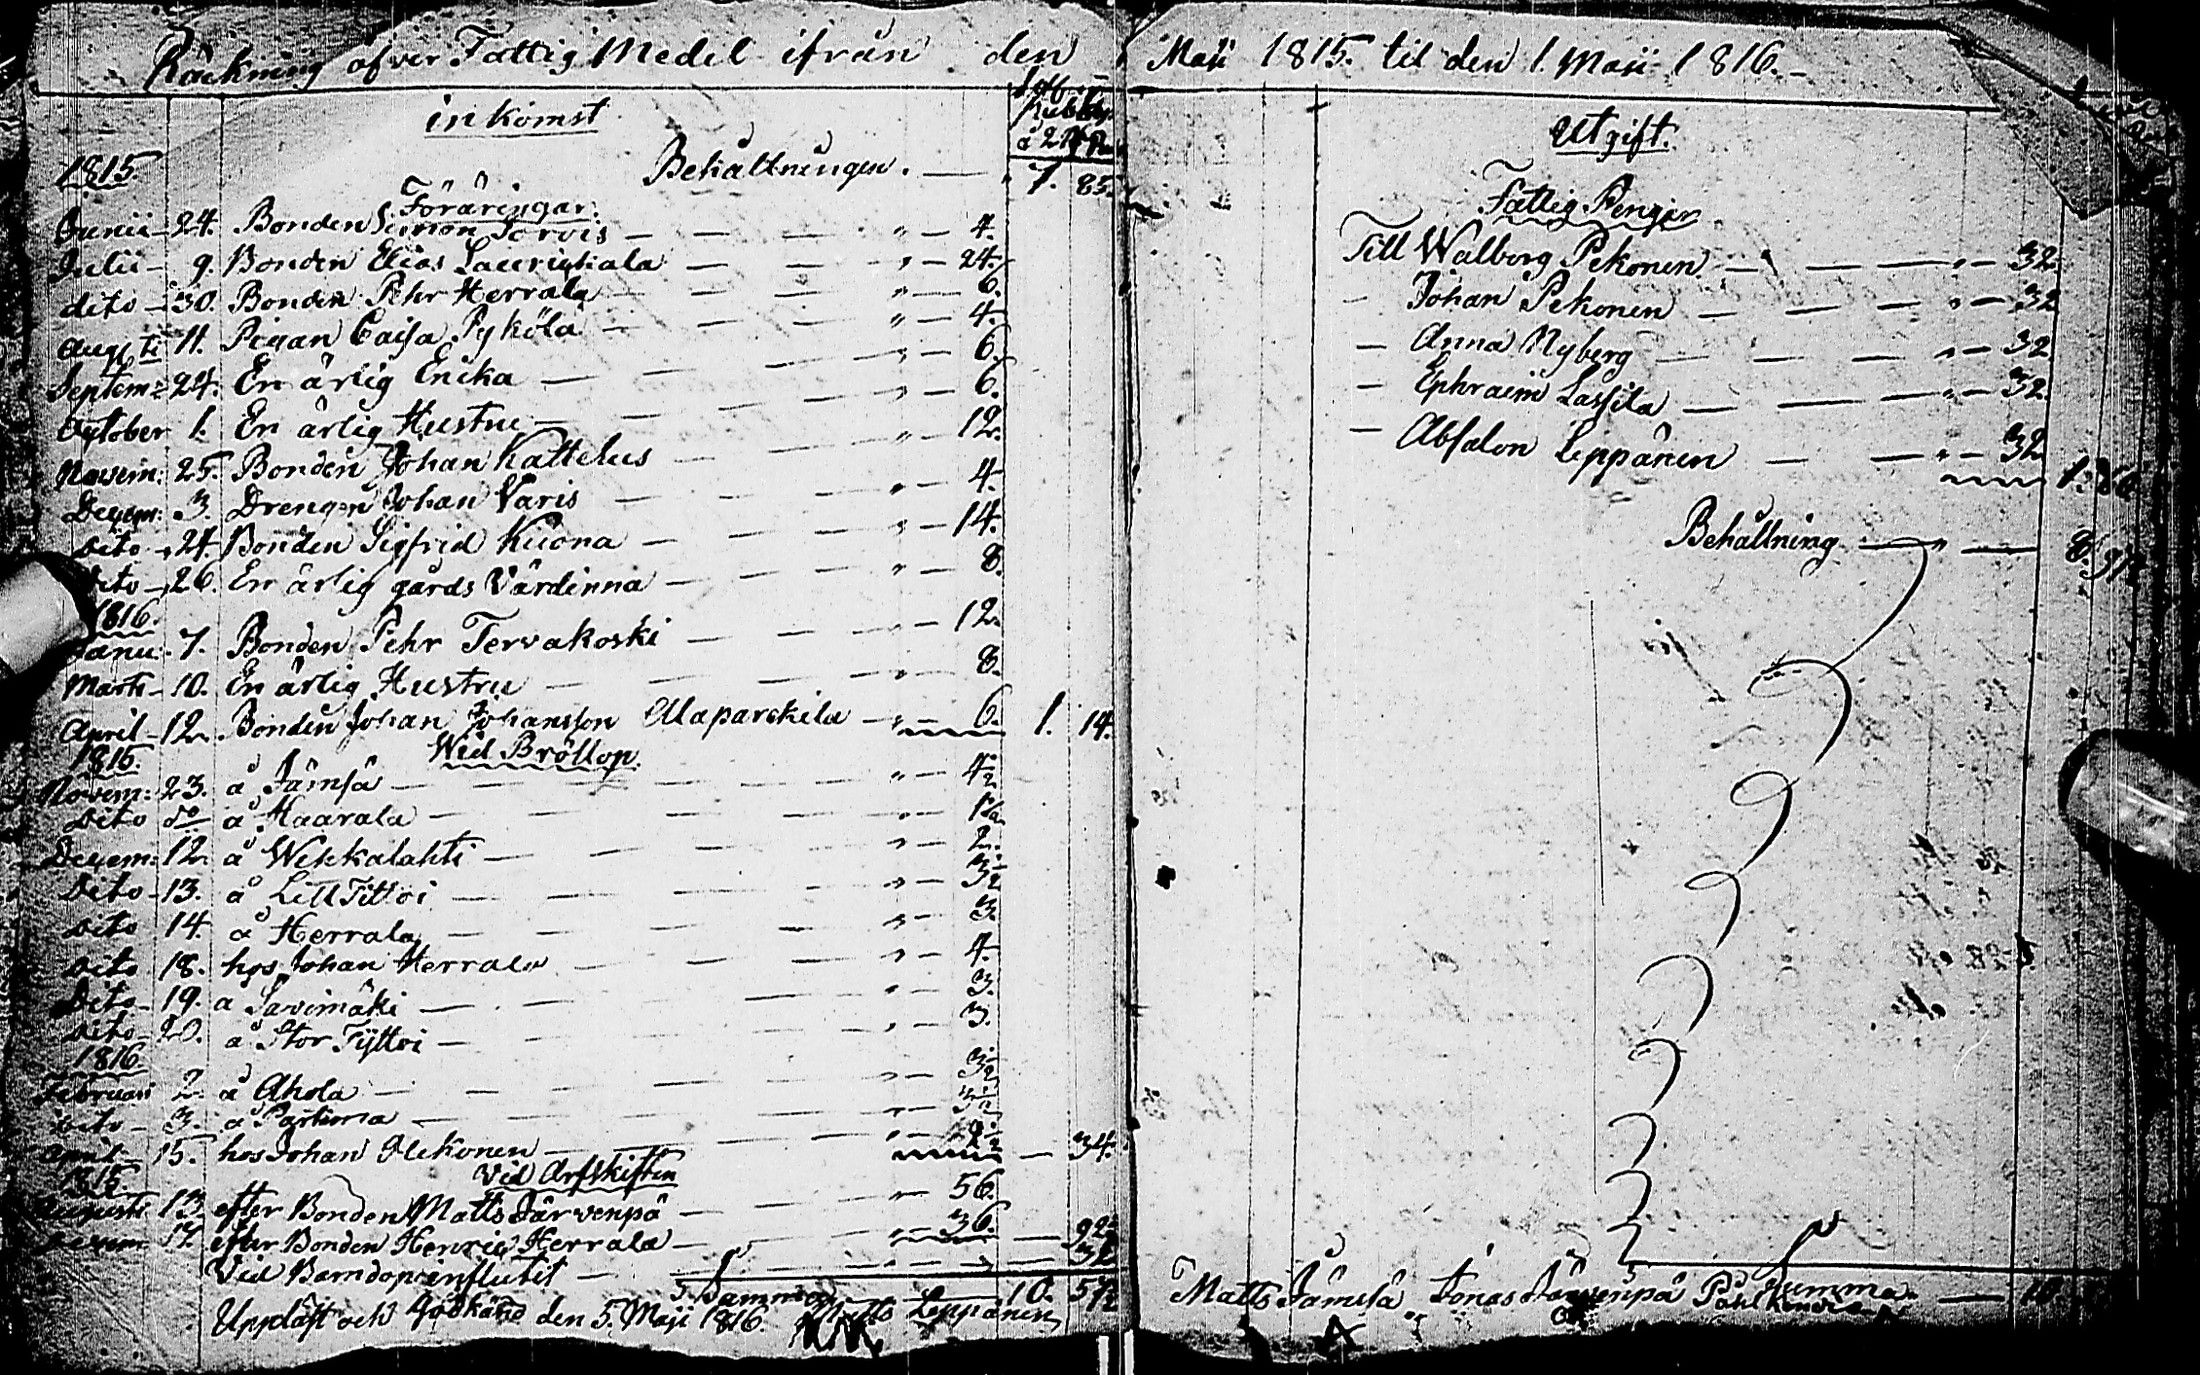 Räckning öfver Fattig Medel ifrån den 1 Maji 1815. til den 1. Maji 1816.
inkomst
1815. Behållningen. — 7. 85.
Föräringar.
Junii — 24. Bonden Simon Torvis — 4.
Julii — 9. Bonden Elias Laurikkala — 24.
dito — 30. Bonden Pehr Herrala — 6.
Augusti 11. Pigan Caisa Pyhölä — 4.
Septem: 24. En ärlig Enika — 6.
October 1. En ärlig Hustru — 6.
Novem: 25. Bonden Johan Kattelus — 12.
Decem: 3. Drengen Johan Varis — 4.
dito — 24. Bonden Sigfrid Kuona — 14.
dito — 26. En ärlig gårds Värdinna — 8.
1816.
Janu: 7. Bonden Pehr Tervakoski — 12.
Marti — 10. En ärlig Hustru — 8.
April — 12. Bonden Johan Johansson Alaparskila — 6. 1. 14.
1815. Wid Bröllop.
Novem: 23. å Jämsä — 4½
Dito do å Haarala — 1½
Decem: 12. å Wekkalahti — 2.
Dito — 13. å Lill Tittoi — 3½
Dito 14. å Herrala — 3.
Dito 18. hos Johan Herrala — 4.
Dito — 19. å Savimäki — 3.
Dito 20. å Stor Tyttoi — 3.
1816.
Februari 2. å Ahola — 3½
Dito — 3. å Partima — 3½
April — 15. hos Johan Pekonen — 2½ — 34.
1815. Vid Arfskiften
Augusti 13. efter Bonden Matts Järvenpä — 56.
Decem 17. efter Bonden Henric Herrala — 36. — 92.
Vid Barndop influtit — 32
Summa 10. 57½
Uppläst och Godkänd den 5. Maji 1816. Matts Leppänen
Utgift.
Fattig Penger
Till Walborg Pekonen — 32
— Johan Pekonen — 32
— Anna Nyberg — 32
— Ephraim Lassila — 32
— Absalon Leppänen — 32
1. 60
Behållning — 8. 97½
Summa — 10
Matts Jämsä Jonas Järvenpä